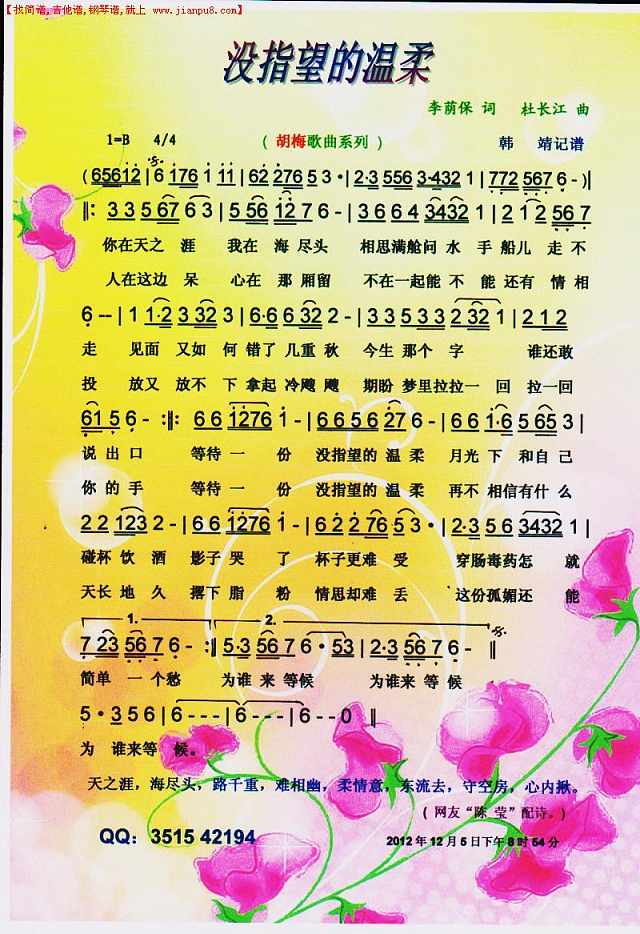 【找简谱,吉他谱,钢琴谱,就上 www.jianpu8.com】
没指望的温柔
李荫保 词 杜长江 曲
1=B 4/4 (胡梅歌曲系列) 韩 靖记谱
(65612|6 176 1 11|62 276 5 3·|2·3 556 3·432 1|772 567 6-)|
‖: 3 3 5 67 6 3|5 56 12 7 6-|3 6 6 4 3432 1|2 1 2 56 7
你在天之 涯 我在 海 尽头 相思满舱问 水 手 船儿 走 不
人在这边 呆 心在 那 厢留 不在一起能 不 能还有 情 相
6--|1 1·2 3 32 3|6·6 6 32 2-|3 3 5 3 3 2 32 1|2 1 2
走 见面 又如 何 错了 几重 秋 今生 那个 字 谁还敢
投 放又 放不 下 拿起 冷飕 飕 期盼 梦里拉拉一 回 拉一回
61 5 6- :‖: 6 6 1276 1-|6 6 5 6 27 6-|6 6 1·6 5 65 3|
说 出 口 等待 一 份 没指望的 温 柔 月光 下 和自 己
你 的 手 等待 一 份 没指望的 温 柔 再不 相信有 什么
2 2 123 2-|6 6 1276 1-|6 2 2 76 5 3·|2·3 5 6 3432 1|
碰杯 饮 酒 影子 哭 了 杯子更难 受 穿肠毒药怎 就
天长 地 久 撂下 脂 粉 情思却难 丢 这份孤媚还 能
1. 2.
7 23 56 7 6- :‖5·3 56 7 6·53|2·3 56 7 6- ‖
简单 一 个愁 为谁 来 等候 为谁来 等 候
5·3 5 6|6---|6---|6--0 ‖
为 谁来等 候。
天之涯，海尽头，路千重，难相幽，柔情意，东流去，守空房，心内揪。
(网友“陈 莹”配诗。)
QQ：3515 42194 2012年12月5日下午8时54分